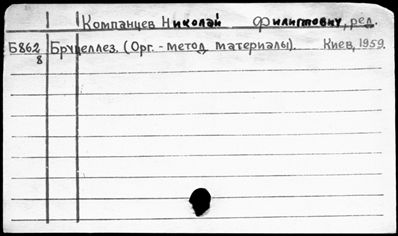 Компанцев Николай Филиппович, ред.
Б862 Бруцеллез. (Орг. - метод. материалы). Киев, 1959.
8